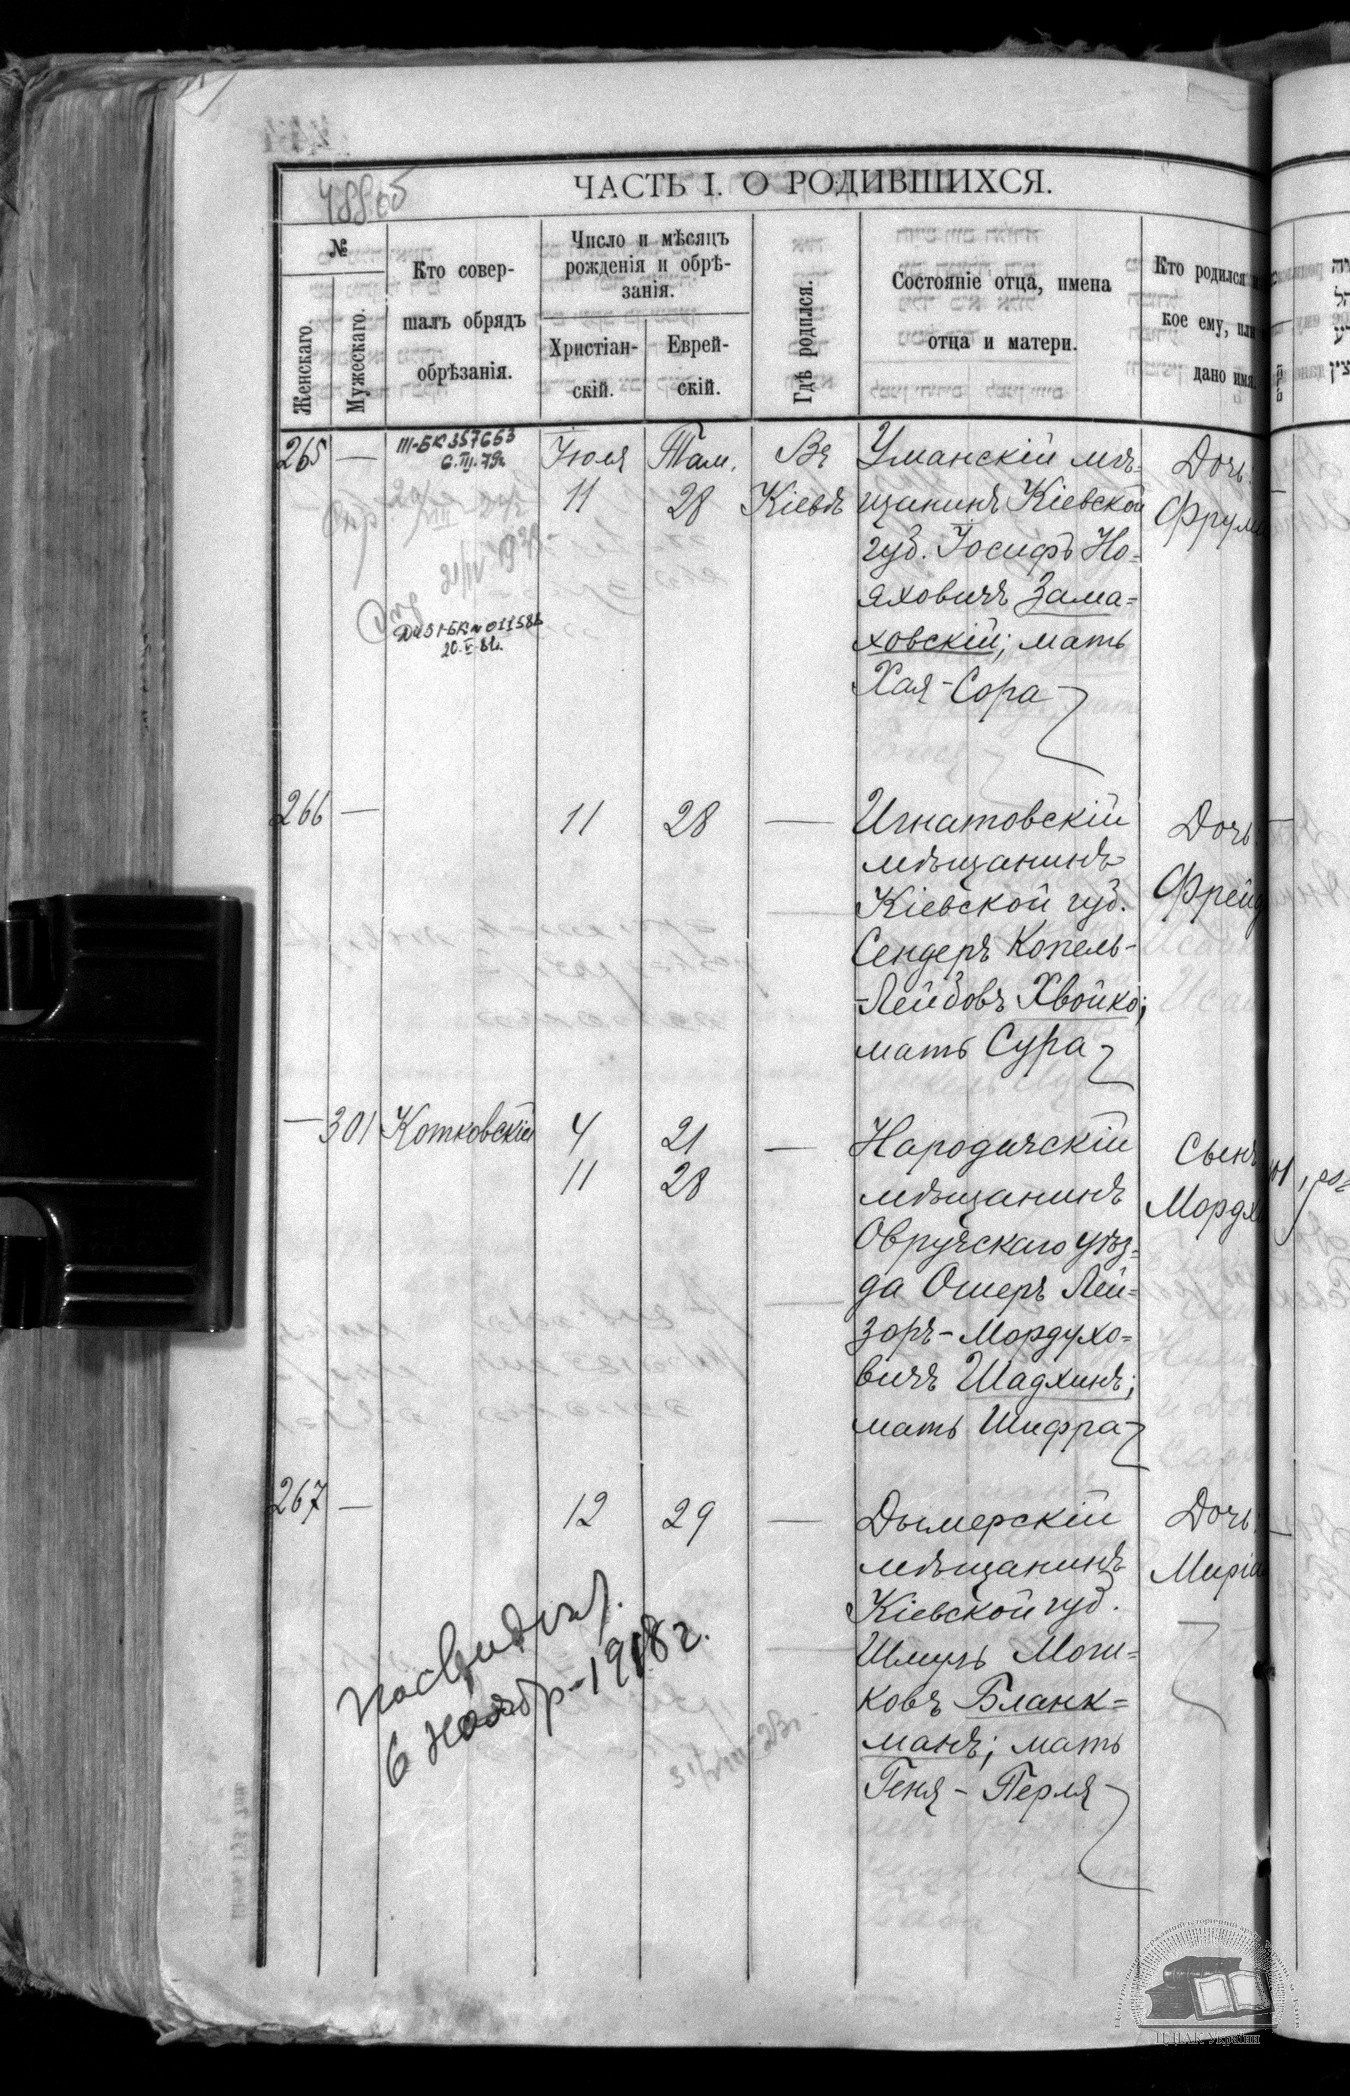 488об
ЧАСТЬ I. О РОДИВШИХСЯ.
№
Женскаго.
Мужескаго.
Кто совер-
шалъ обрядъ
обрѣзанія.
Число и мѣсяцъ
рожденія и обрѣ-
занія.
Христіан-
скій.
Еврей-
скій.
Гдѣ родился.
Состояніе отца, имена
отца и матери.
Кто родился и
кое ему, или
дано имя.
265 —
III-БК 357663
6.III.79г.
Іюля
11
Там.
28
Въ
Кіевѣ
Уманскій мѣ-
щанинъ Кіевской
губ. Іосифъ Но-
яховичъ Зама-
ховскій; мать
Хая-Сора
Дочь
Фрума
20.V.82.
266 —
11
28
—
Игнатовскій
мѣщанинъ
Кіевской губ.
Сендеръ Копель-
-Лейбовъ Хвойко;
мать Сура
Дочь
Фрейд
— 301
Котковскій
4
11
21
28
—
Народичскій
мѣщанинъ
Овручскаго уѣз-
да Ошеръ Лей-
зоръ-Мордухо-
вичъ Шадхинъ;
мать Шифра
Сынъ
Мордх
267 —
12
29
—
Дымерскій
мѣщанинъ
Кіевской губ.
Шмуль Мош-
ковъ Бланк-
манъ; мать
Геня-Перля
Дочь
Миріа
6 Ноябр-1918 г.
ЦДІАК України